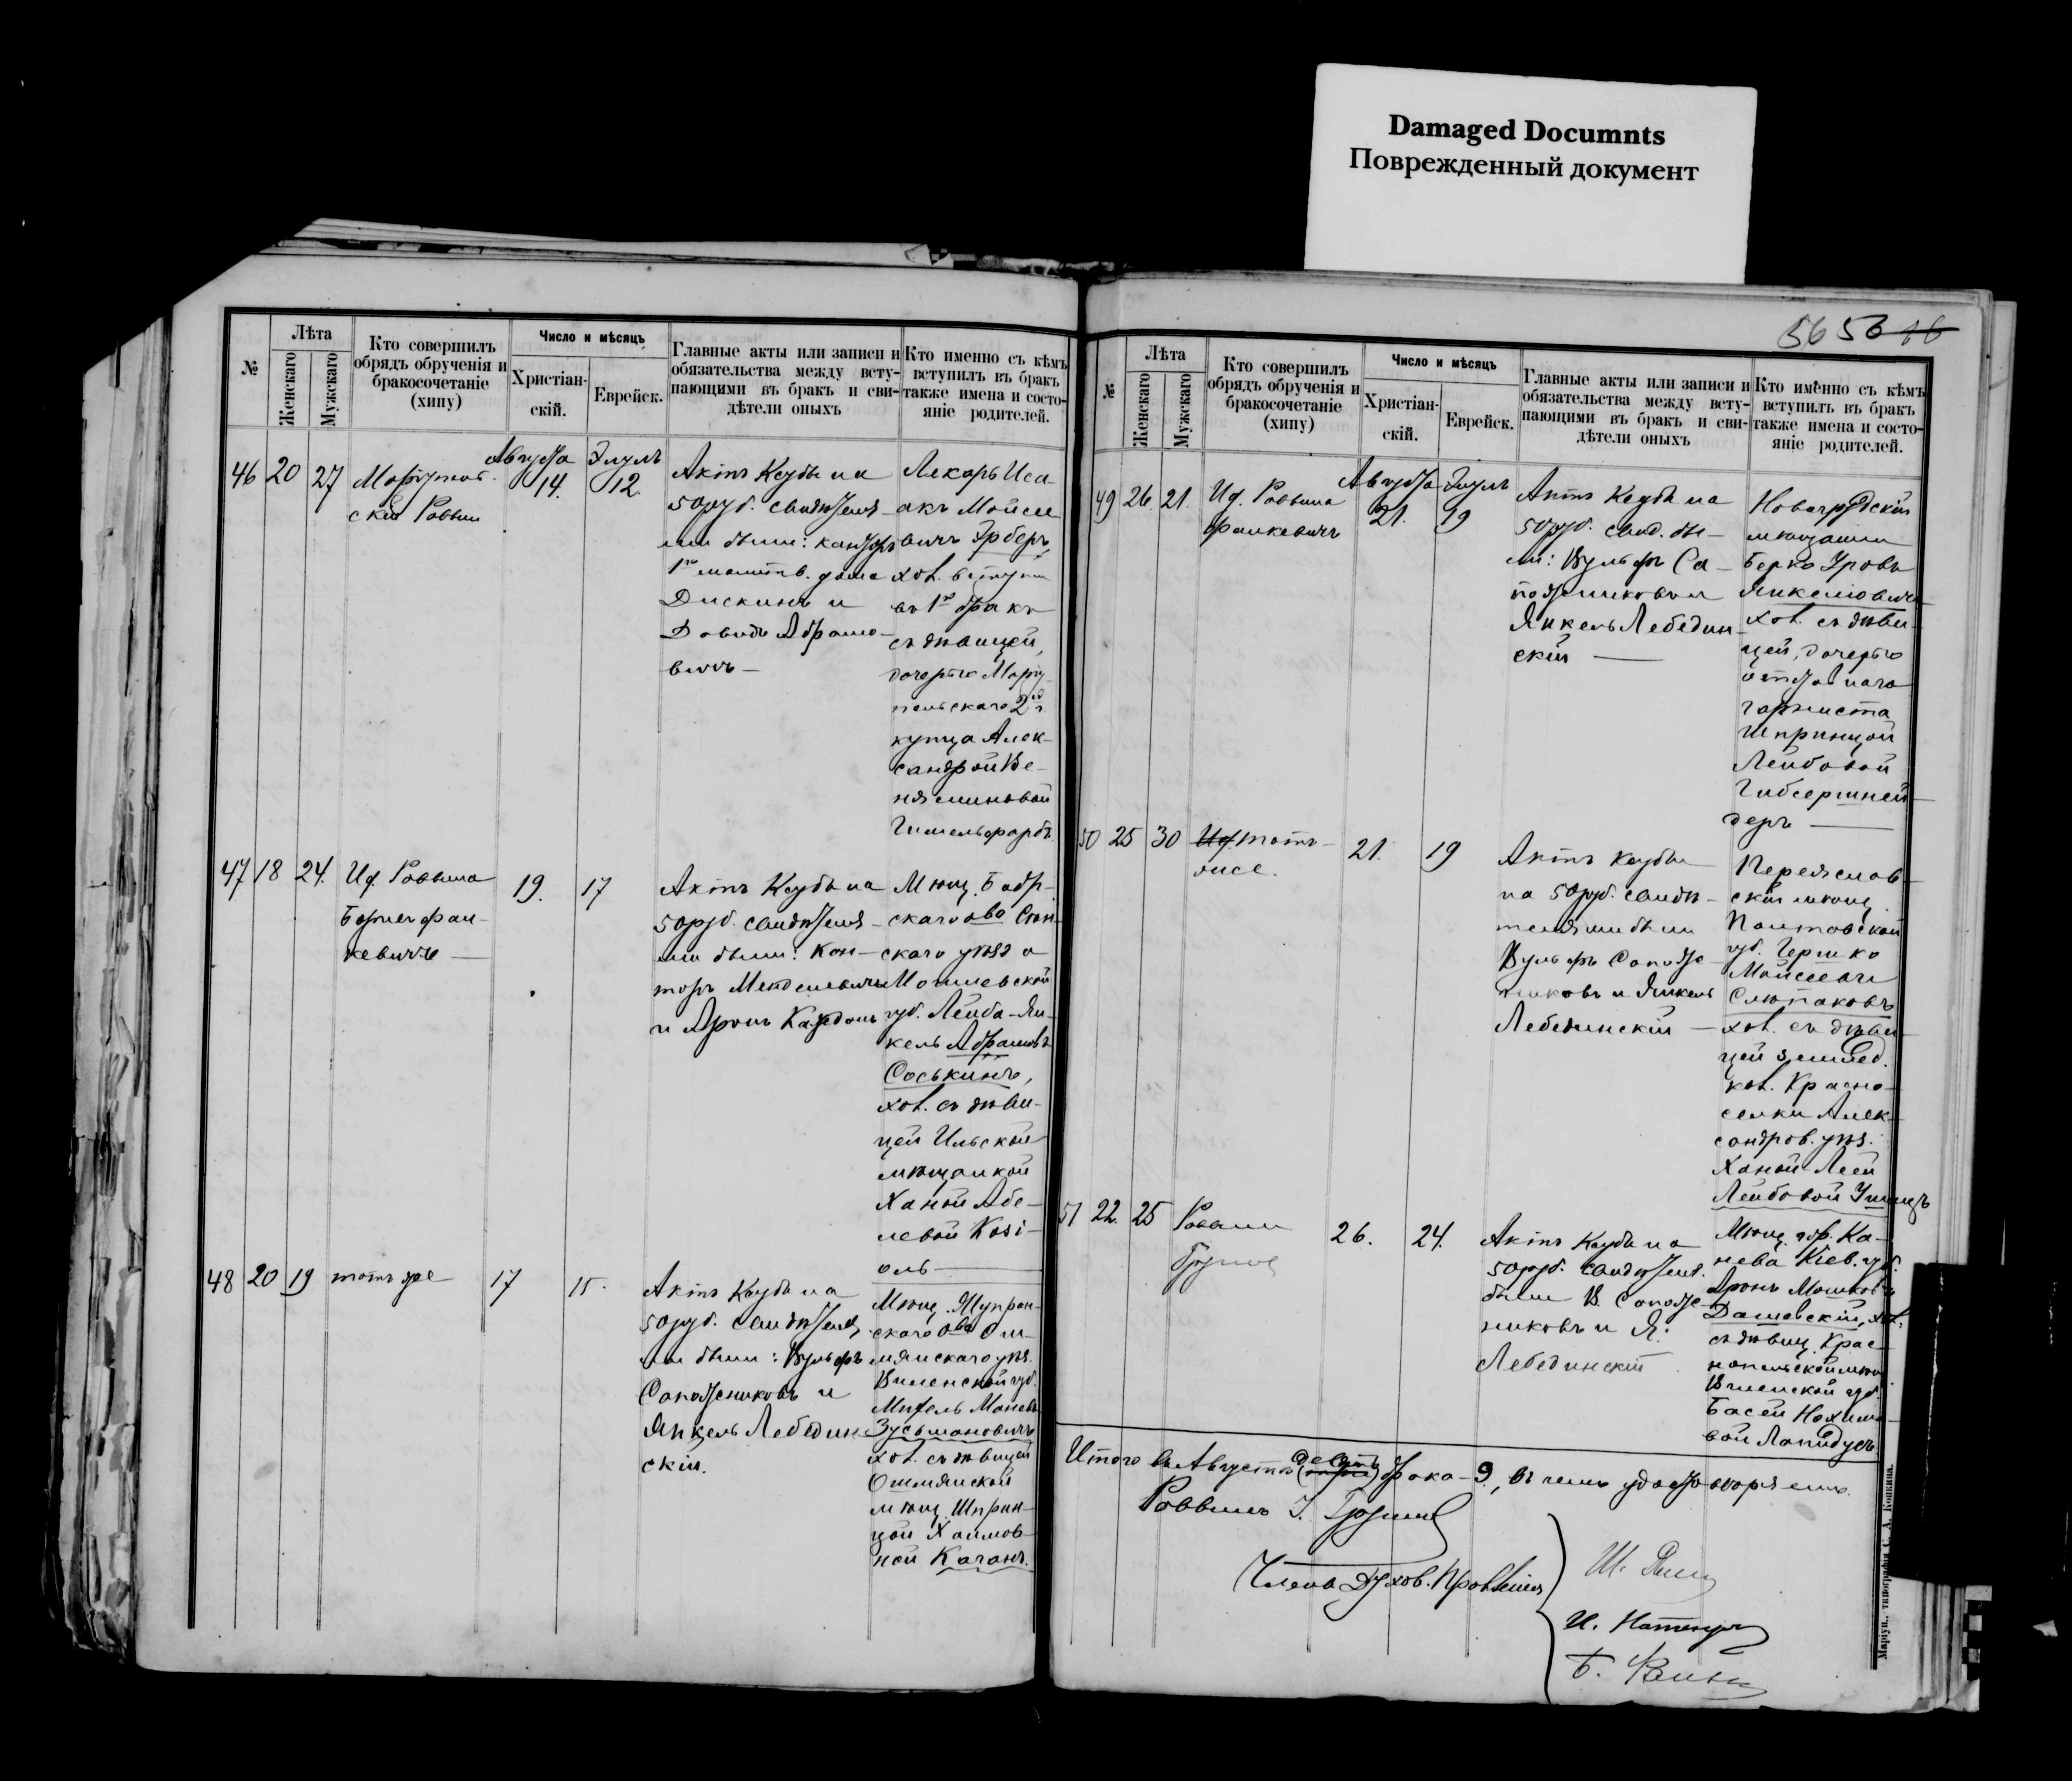 Damaged Documnts
Поврежденный документ
№
Лѣта
Женскаго
Мужскаго
Кто совершилъ
обрядъ обрученія и
бракосочетаніе
(хипу)
Число и мѣсяцъ
Христіан-
скій.
Еврейск.
Главные акты или записи и
обязательства между всту-
пающими въ бракъ и сви-
дѣтели оныхъ
Кто именно съ кѣмъ
вступилъ въ бракъ
также имена и состо-
яніе родителей.
46 20 27
скій Раввин
Августа
14.
Элулъ
12.
Актъ Кеубы на
50 руб. свидѣтеля-
ми были:
1го молитв. дома
Дискинъ и
Давидъ Абрамо-
вичъ —
Лекарь Иса-
акъ Мойсе
вичъ Эрберъ,
хол. вступил
въ 1й бракъ
съ дѣвицей,
дочерью Маріу-
польскаго 2й г.
купца Алек-
сандрой Ве-
ніаминовой
Гимельфарбъ
47 18 24.
Ид. Раввина
Борисъ Фан-
кевичъ —
19.
17
Актъ Кеубы на
50 руб. свидѣтеля-
ми были: Кан-
торъ Менделевичъ
и Аронъ
Мѣщ. Бобр-
скаго о-ва Сѣн-
скаго уѣзда
Могилевской
губ. Лейба-Ян-
кель Абрамовъ
Соськинъ,
хол. съ дѣви-
цей Ильской
мѣщанкой
Ханой Абе-
левой Козі-
оль —
48 20 19
тотъ же
17
15.
Актъ Кеубы на
50 руб. свидѣтеля-
ми были: Вульфъ
Сапожниковъ и
Янкель Лебедин-
скій.
Мѣщ. Жупран-
скаго о-ва Ош-
мянскаго уѣз.
Виленской губ.
Зусьмановичъ
хол. съ дѣвицей
Ошмянской
мѣщ. Шприн-
цой Хаимов-
ной Каганъ.
56 56 46
№
Лѣта
Женскаго
Мужскаго
Кто совершилъ
обрядъ обрученія и
бракосочетаніе
(хипу)
Число и мѣсяцъ
Христіан-
скій.
Еврейск.
Главные акты или записи и
обязательства между всту-
пающими въ бракъ и сви-
дѣтели оныхъ
Кто именно съ кѣмъ
вступилъ въ бракъ
также имена и состо-
яніе родителей.
49 26. 21.
Ид. Раввина
Фанкевичъ
Августа
21.
Элулъ
19
Актъ Кеубы на
50 руб. свид. бы-
ли: Вульфъ Са-
пожниковъ и
Янкель Лебедин-
скій —
Новогрудскій
мѣщанинъ
Берко Уровъ
Янкелювичъ
хол. съ дѣви-
цей, дочерью
отставнаго
горниста
Шпринцой
Лейбовой
Гибсершней-
деръ —
50 25 30
Ид. тотъ-
же.
21.
19
Актъ Кеубы
на 50 руб. свидѣ-
телями были
Вульфъ Сапож-
никовъ и Янкель
Лебединскій —
Переяслав-
скій мѣщ.
Полтавской
губ. Гершко
Мойсеевъ
Слюпаковъ
хол. съ дѣви-
цей землед.
кол. Красно-
селки Алек-
сандров. уѣз.
Ханой-Леей
Лейбовой
51 22. 25
Раввин
26.
24.
Актъ Кеубы на
50 руб. свидѣтеля.
были В. Сапож-
никовъ и Я.
Лебединскій
Мѣщ. гор. Ка-
нева Кіев. губ.
Аронъ Мошковъ
Дашевскій, хол.
съ дѣвиц. Крас-
нопольской мѣщ.
Виленской губ.
Басей Нохимо-
вой Лапидусъ
Итого въ Августѣ девять брака - 9, въ чемъ удостовѣряемъ.
Раввинъ
Члены Духов. Правленія
Ш.
И.
Б.
Маріуп., типографія С. А. Копкина.